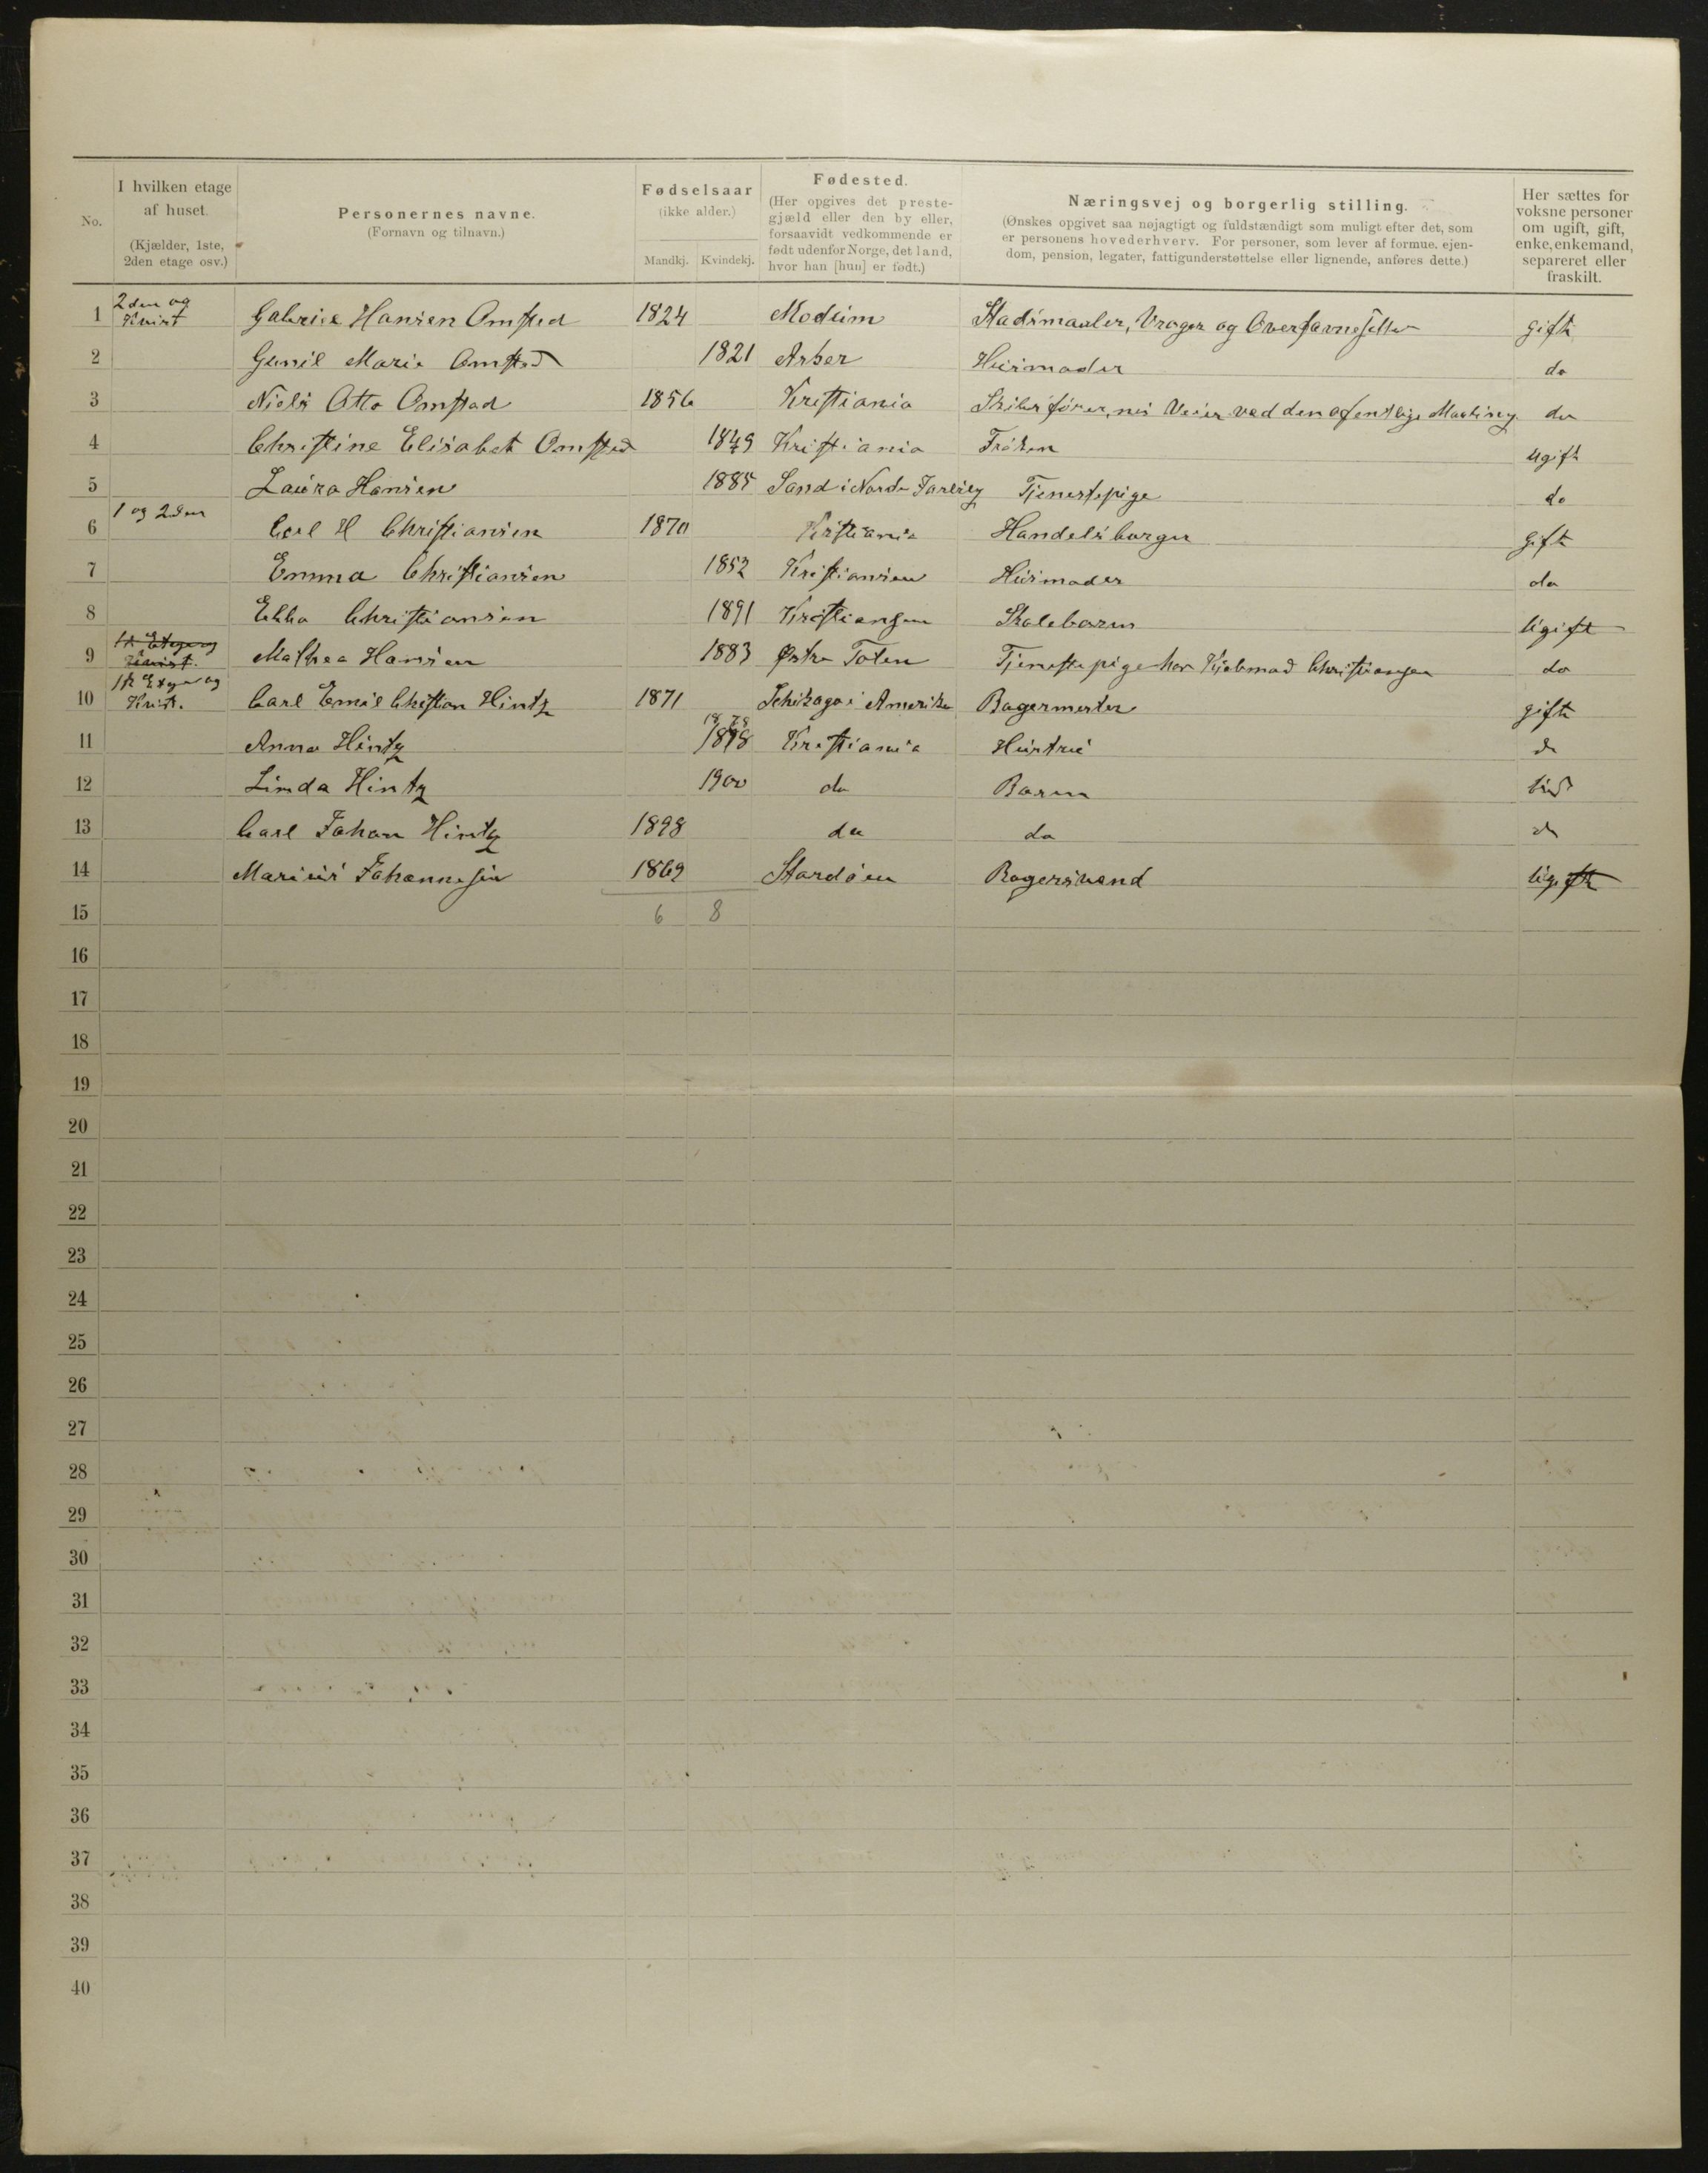 No.
I hvilken etage
af huset.
(Kjælder, 1ste,
2den etage osv.)
Personernes navne.
(Fornavn og tilnavn.)
Fødselsaar
(ikke alder.)
Mandkj. Kvindekj.
Fødested.
(Her opgives det preste-
gjæld eller den by eller,
forsaavidt vedkommende er
født udenfor Norge, det land,
hvor han [hun] er født.)
Næringsvej og borgerlig stilling.
(Ønskes opgivet saa nøjagtigt og fuldstændigt som muligt efter det, som
er personens hovederhverv. For personer, som lever af formue, ejen-
dom, pension, legater, fattigunderstøttelse eller lignende, anføres dette.)
Her sættes for
voksne personer
om ugift, gift,
enke, enkemand,
separeret eller
fraskilt.
2den og
Kvist
1 Gabriel Hansen Omsted 1824 Modum Stadsmaaler, Vrager og gift
2 Gunil Marie Omsted 1821 Asker Husmoder do
3 Niels Otto Omstad 1856 Kristiania ved den do
4 Christine Elisabet Omsted 1849 Kristiania Frøken ugift
5 Laura Hansen 1885 Sand i Nordre Tjenestepige do
1 og 2den
6 Carl H Christiansen 1870 Kristiania Handelsborger gift
7 Emma Christiansen 1852 Husmoder do
8 Ebba Christiansen 1891 Skolebarn Ugift
1st Etage og
Kvist.
9 Mathea Hansen 1883 Østre Toten Tjenestepige hos Kjøbmad Christiansen do
1st Etage og
Kvist.
10 Carl Emil Christian Hintz 1871 Schikago i Amerika Bagermester gift
1878
11 Anna Hintz 1878 Kristiania Hustru do
12 Linda Hintz 1900 do Barn
13 Carl Johan Hintz 1898 do do do
14 Marius Johannesen 1869 Stordøen Bagersvend Ugift
15 6 8
16
17
18
19
20
21
22
23
24
25
26
27
28
29
30
31
32
33
34
35
36
37
38
39
40